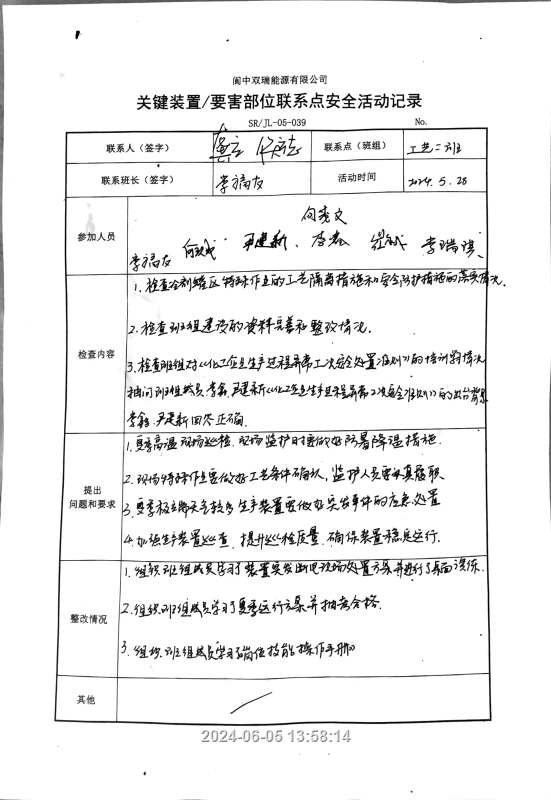 阆中双瑞能源有限公司
关键装置/要害部位联系点安全活动记录
SR/JL-05-039 No.
联系人（签字） 联系点（班组） 工艺二班
联系班长（签字） 李福友 活动时间 2024.5.28
参加人员
李福友 尹建新、李鑫 李瑞琪
检查内容
1、检查冷剂罐区特殊作业的工艺隔离措施和安全防护措施的落实情况.
2、检查班组建设的资料完善和整改情况.
3、检查班组对《化工企业生产过程异常工况安全处置准则》的培训情况
抽问班组成员李鑫、尹建新《化工企业生产过程异常工况安全准则》的出台背景
李鑫、尹建新回答正确.
提出
问题和要求
1、夏季高温现场巡检、现场监护时要做好防暑降温措施.
2、现场特殊作业要做好工艺条件确认，监护人员要认真履职
3、夏季极端天气较多生产装置要做好突发事件的应急处置
4、加强生产装置巡查，提升巡检质量，确保装置稳定运行.
整改情况
1、组织班组成员学习了装置突发断电现场处置方案并进行了桌面演练.
2、组织班组成员学习了夏季运行方案并抽考合格.
3、组织班组成员学习《岗位技能操作手册》
其他
2024-06-05 13:58:14